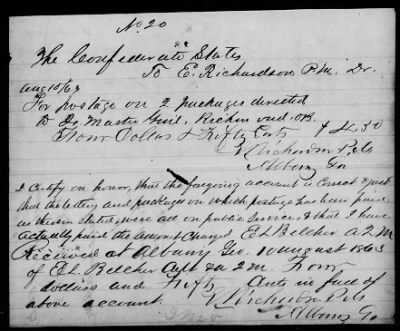 No. 20
The Confederate States
To E. Richardson P.M. Dr.
Aug 10/63
For postage on 2 packages directed
to Qr Master Genl. Richmond
Four Dollars & Fifty Cents $4.50
E Richardson P.M.
Albany Ga
I Certify on honor, that the foregoing account is Correct & just
that the letters and packages on which postage has been paid
as therein stated, were all on public Service, & that I have
actually paid the amount charged E L Belcher a 2 M
Received at Albany Geo. 10 august 1863
of E L Belcher a 2 M. Four
dollars and fifty Cents in full of
above account.
E Richardson P.M.
Albany Ga